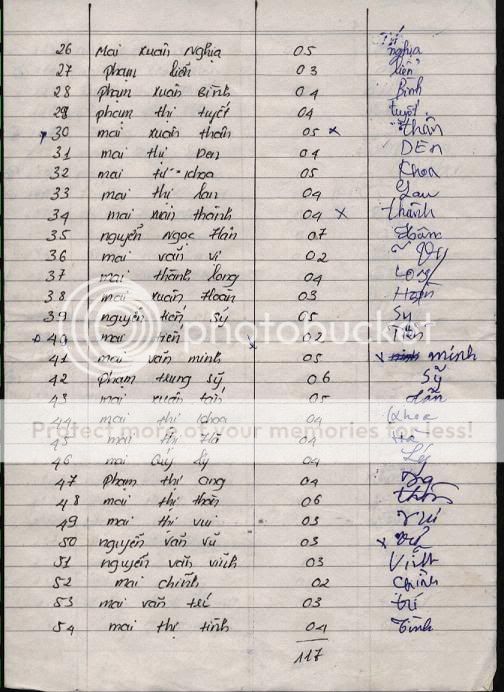 26 Mai xuân Nghĩa 05 nghĩa
27 phạm liễn 03 liễn
28 phạm xuân Bình 04 Bình
29 phạm thị tuyết 04 tuyết
30 mai xuân thân 05 x thân
31 mai thị Den 04 DEN
32 mai tứ khoa 05 Khoa
33 mai thị lan 04 Lan
34 mai xuân thành 04 x thành
35 nguyễn ngọc 07
36 mai văn vi 02 Vy
37 mai thành long 04 Long
38 mai xuân Hoàn 03 Hoàn
39 nguyễn tiến sỹ 05 Sỹ
40 mai tiến x 02
41 mai văn minh 05 x minh
42 phạm trung sỹ 06 Sỹ
43 mai xuân 05
44 mai thị khoa 04 Khoa
45 mai thị Hà 04 Hà
46 mai Quý lý 04 Lý
47 phạm thị ang 04
48 mai thị thân 06 thân
49 mai thị vui 03 vui
50 nguyễn văn vũ 03 x vũ
51 nguyễn văn vinh 03 Vinh
52 mai chinh 02 Chinh
53 mai văn trí 03 trí
54 mai thị tình 04 Tình
117
photobucket
Protect more of your memories for less!